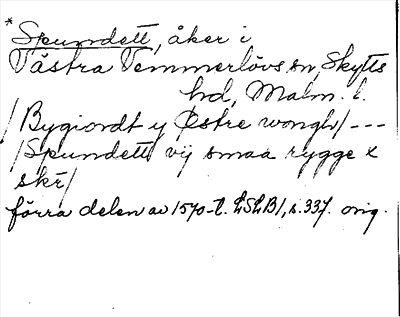 * Spundett, åker i
Västra Vemmerlövs sn, Skytts
hd, Malm. l.
/Bygiordt y Østre wongh/ ---
/Spundett vij smaa rygge x
skr/
förra delen av 1570-t. LSLB1, s. 337. orig.